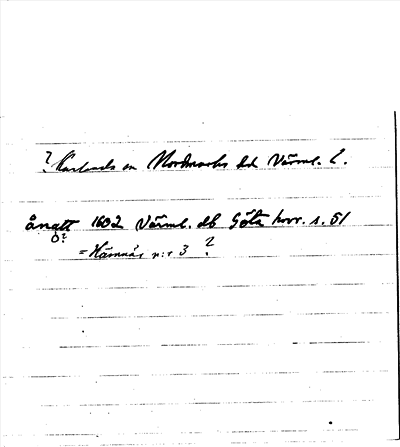 ? Karlanda sn Nordmarks hd Värml. l.
ånatt 1602 Värml. db Göta hovr. s. 51
o?
= Hämnäs n:r 3 ?